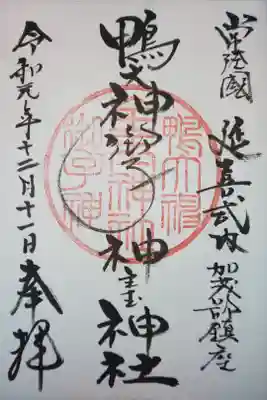 常陸國
延喜式内 加茂部鎮座
鴨大神御子神主玉神社
令和元年十二月十一日 奉拝